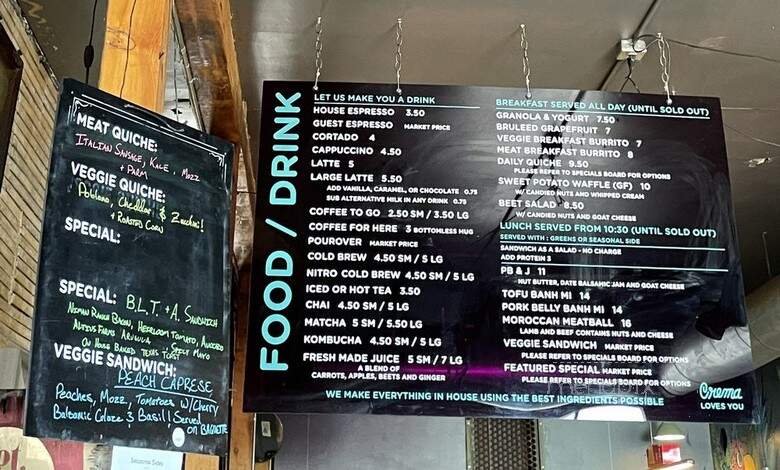 MEAT QUICHE:
ITALIAN SAUSAGE, KALE, MOZZ
+ PARM
VEGGIE QUICHE:
Poblano, Cheddar & Zucchini!
+ ROASTED CORN
SPECIAL:
SPECIAL: B.L.T. + A. SANDWICH
NEIMAN RANCH BACON, HEIRLOOM TOMATO, AVOCADO
ARUGULA SPICY MAYO
ON HOUSE BAKED TEXAS TOAST
VEGGIE SANDWICH:
PEACH CAPRESE
Peaches, Mozz, Tomatoes w/Cherry
Balsamic Glaze & Basil! Served
ON BAGUETTE
Seasonal Sides
FOOD / DRINK
LET US MAKE YOU A DRINK
HOUSE ESPRESSO 3.50
GUEST ESPRESSO MARKET PRICE
CORTADO 4
CAPPUCCINO 4.50
LATTE 5
LARGE LATTE 5.50
ADD VANILLA, CARAMEL, OR CHOCOLATE 0.75
SUB ALTERNATIVE MILK IN ANY DRINK 0.75
COFFEE TO GO 2.50 SM / 3.50 LG
COFFEE FOR HERE 3 BOTTOMLESS MUG
POUROVER MARKET PRICE
COLD BREW 4.50 SM / 5 LG
NITRO COLD BREW 4.50 SM / 5 LG
ICED OR HOT TEA 3.50
CHAI 4.50 SM / 5 LG
MATCHA 5 SM / 5.50 LG
KOMBUCHA 4.50 SM / 5 LG
FRESH MADE JUICE 5 SM / 7 LG
A BLEND OF
CARROTS, APPLES, BEETS AND GINGER
BREAKFAST SERVED ALL DAY (UNTIL SOLD OUT)
GRANOLA & YOGURT 7.50
BRULEED GRAPEFRUIT 7
VEGGIE BREAKFAST BURRITO 7
MEAT BREAKFAST BURRITO 8
DAILY QUICHE 9.50
PLEASE REFER TO SPECIALS BOARD FOR OPTIONS
SWEET POTATO WAFFLE (GF) 10
W/ CANDIED NUTS AND WHIPPED CREAM
BEET SALAD 8.50
W/ CANDIED NUTS AND GOAT CHEESE
LUNCH SERVED FROM 10:30 (UNTIL SOLD OUT)
SERVED WITH : GREENS OR SEASONAL SIDE
SANDWICH AS A SALAD - NO CHARGE
ADD PROTEIN 3
PB & J 11
NUT BUTTER, DATE BALSAMIC JAM AND GOAT CHEESE
TOFU BANH MI 14
PORK BELLY BANH MI 14
MOROCCAN MEATBALL 16
LAMB AND BEEF CONTAINS NUTS AND CHEESE
VEGGIE SANDWICH MARKET PRICE
PLEASE REFER TO SPECIALS BOARD FOR OPTIONS
FEATURED SPECIAL MARKET PRICE
PLEASE REFER TO SPECIALS BOARD FOR OPTIONS
WE MAKE EVERYTHING IN HOUSE USING THE BEST INGREDIENTS POSSIBLE
Crema
LOVES YOU